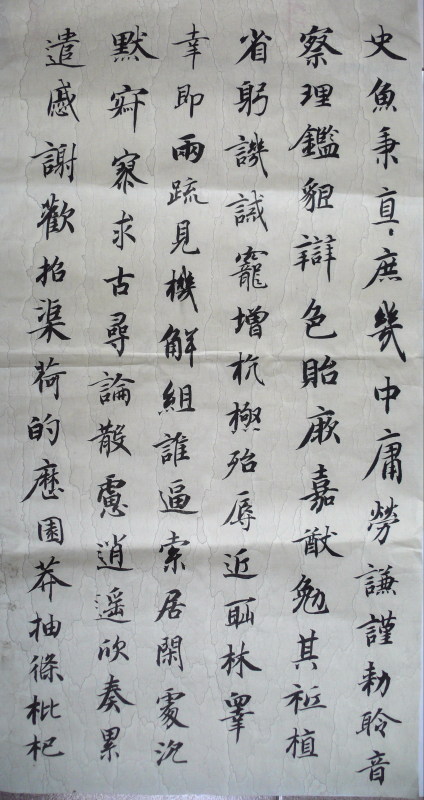 史魚秉直庶幾中庸勞謙謹勑聆音
察理鑑貌辯色貽厥嘉猷勉其祗植
省躬譏誡寵增抗極殆辱近恥林皋
幸即兩疏見機解組誰逼索居閑處沉
默寂寥求古尋論散慮逍遙欣奏累
遣慼謝歡招渠荷的歷園莽抽條枇杷